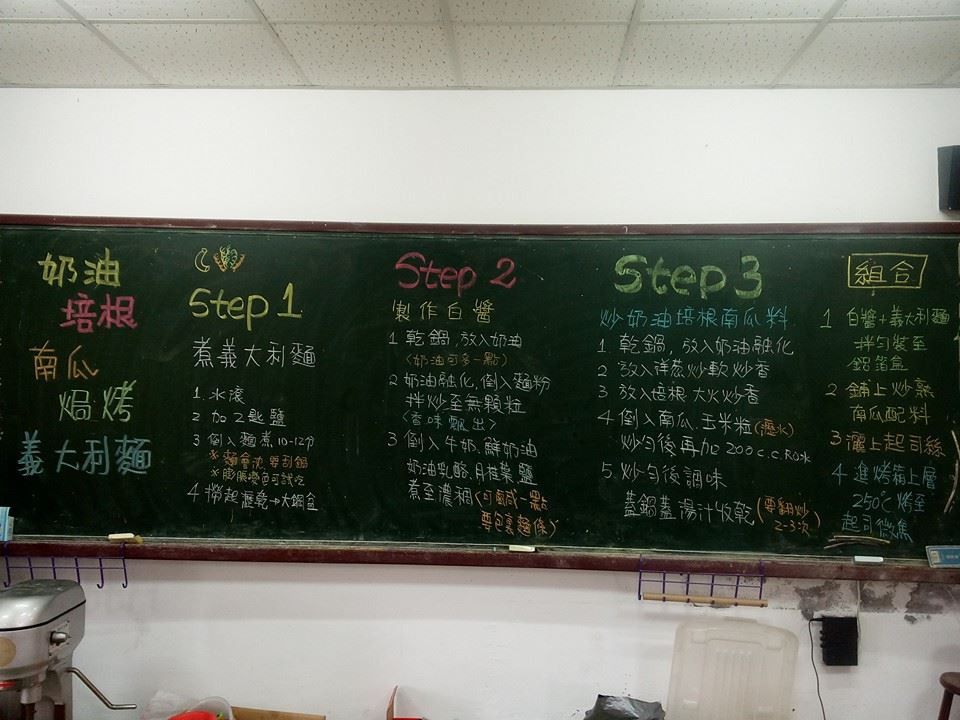 奶油
培根
南瓜
焗烤
義大利麵
Step 1
煮義大利麵
1. 水滾
2 加2匙鹽
3 倒入麵煮10-12分
※麵會沈要刮鍋
※膨脹變色可試吃
4 撈起瀝乾→大鍋盒
Step 2
製作白醬
1 乾鍋,放入奶油
(奶油可多一點)
2 奶油融化,倒入麵粉
拌炒至無顆粒
(香味飄出)
3 倒入牛奶.鮮奶油
奶油乳酪.月桂葉.鹽
煮至濃稠(可鹹一點
要包裹麵條)
Step 3
炒奶油培根南瓜料
1. 乾鍋,放入奶油融化
2. 放入洋蔥炒軟炒香
3. 放入培根大火炒香
4 倒入南瓜.玉米粒(瀝水)
炒勻後再加200c.c.RO水
5. 炒勻後調味
蓋鍋蓋湯汁收乾(要翻炒
2-3次)
組合
1 白醬+義大利麵
拌勻裝至
鋁箔盒
2 鋪上炒熟
南瓜配料
3 灑上起司絲
4 進烤箱上層
250℃烤至
起司微焦